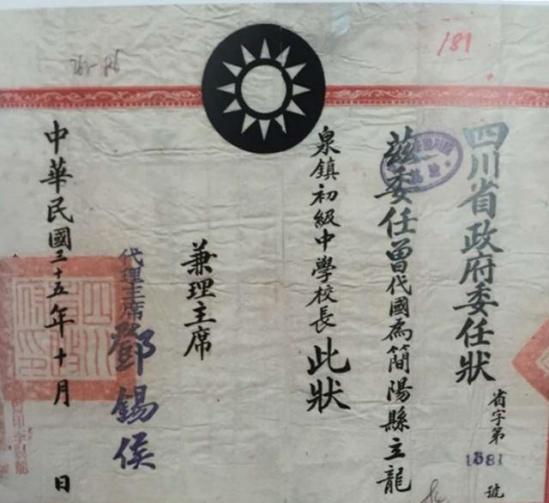 四川省政府委任狀
省字第1581號
茲委任曾代國為簡陽縣立龍
泉鎮初級中學校長此狀
兼理主席
代理主席鄧錫侯
中華民國三十五年十月 日
181